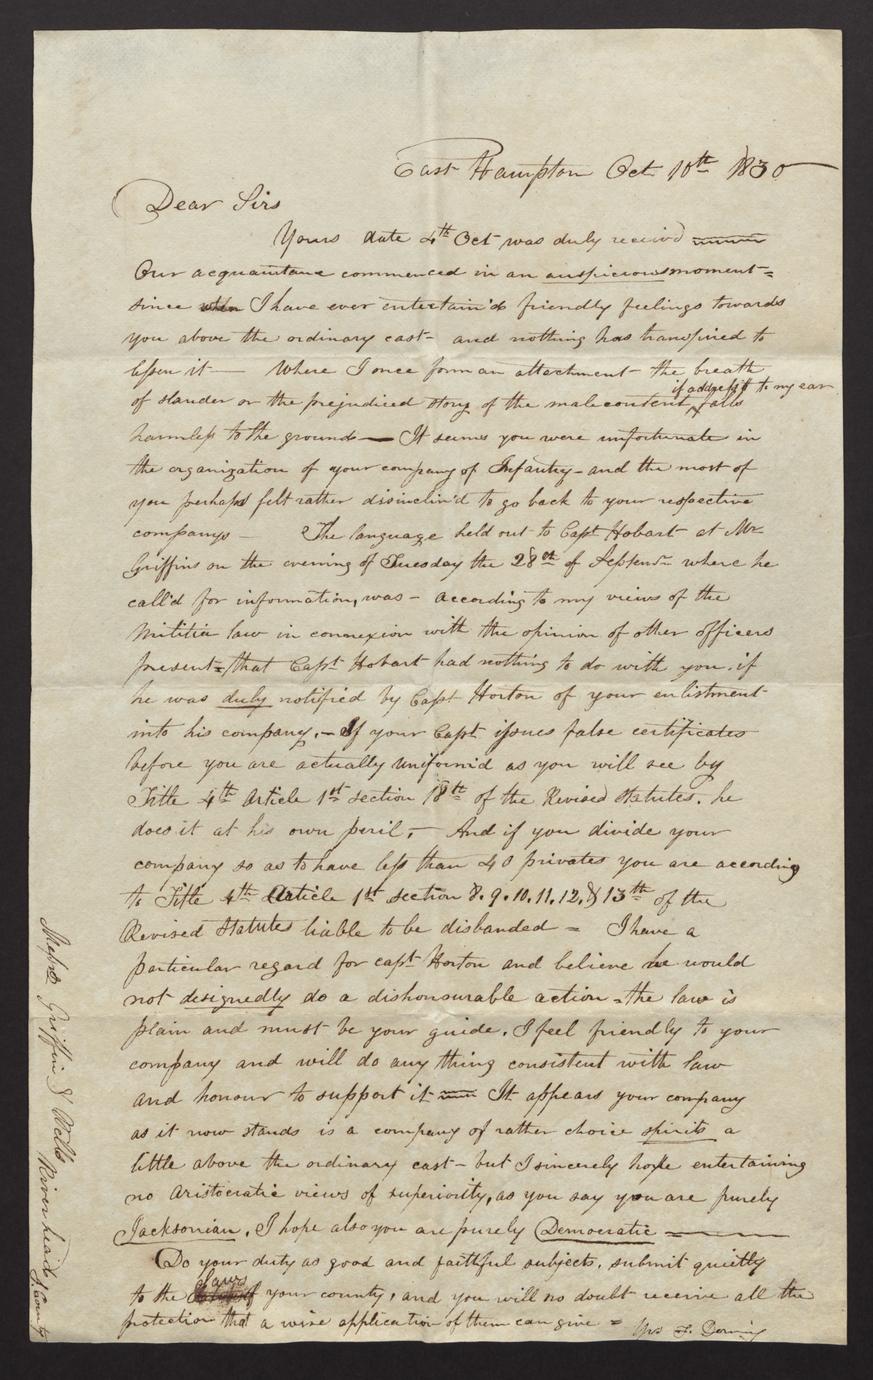 East Hampton Oct 10th 1830
Dear Sirs
Yours date 4th Oct was duly receivd
Our acquaintane commenced in an auspicious moment-
since I have ever entertain'd friendly feelings towards
you above the ordinary cast- and nothing has transpired to
lessen it — Where I once form an attachment- the breath
if address'd to my ear
of slander or the prejudiced story of the malecontent, falls
harmless to the ground — It seems you were unfortunate in
the organization of your company of Infantry - and the most of
you perhaps felt rather disinclin'd to go back to your respective
companys - The language held out to Capt Hobart at Mr
Griffins on the evening of Tuesday the 28th of Septemr where he
call'd for information, was - according to my views of the
Militia law in connexion with the opinion of other officers
present = that Capt Hobart had nothing to do with you, if
he was duly notified by Capt Horton of your enlistment
into his company. - If your Capt issues false certificates
before you are actually uniform'd as you will see by
Title 4th Article 1st section 18th of the Revised Statutes. he
does it at his own peril. - And if you divide your
company so as to have less than 40 privates you are according
to Title 4th Article 1st section 8. 9. 10. 11. 12. & 13th of the
Revised Statutes liable to be disbanded = I have a
particular regard for capt Horton and believe he would
not designedly do a dishonourable action - the law is
plain and must be your guide. I feel friendly to your
company and will do any thing consistent with law
and honour to support it It appears your company
as it now stands is a company of rather choice spirits a
little above the ordinary cast - but I sincerely hope entertaining
no Aristocratic views of superiority, as you say you are purely
Jacksonian. I hope also you are purely Democratic
Do your duty as good and faithful subjects, submit quietly
to the Laws your county, and you will no doubt receive all the
protection that a wise application of them can give = Yrs
Messrs Griffin & Wells Riverhead S. County